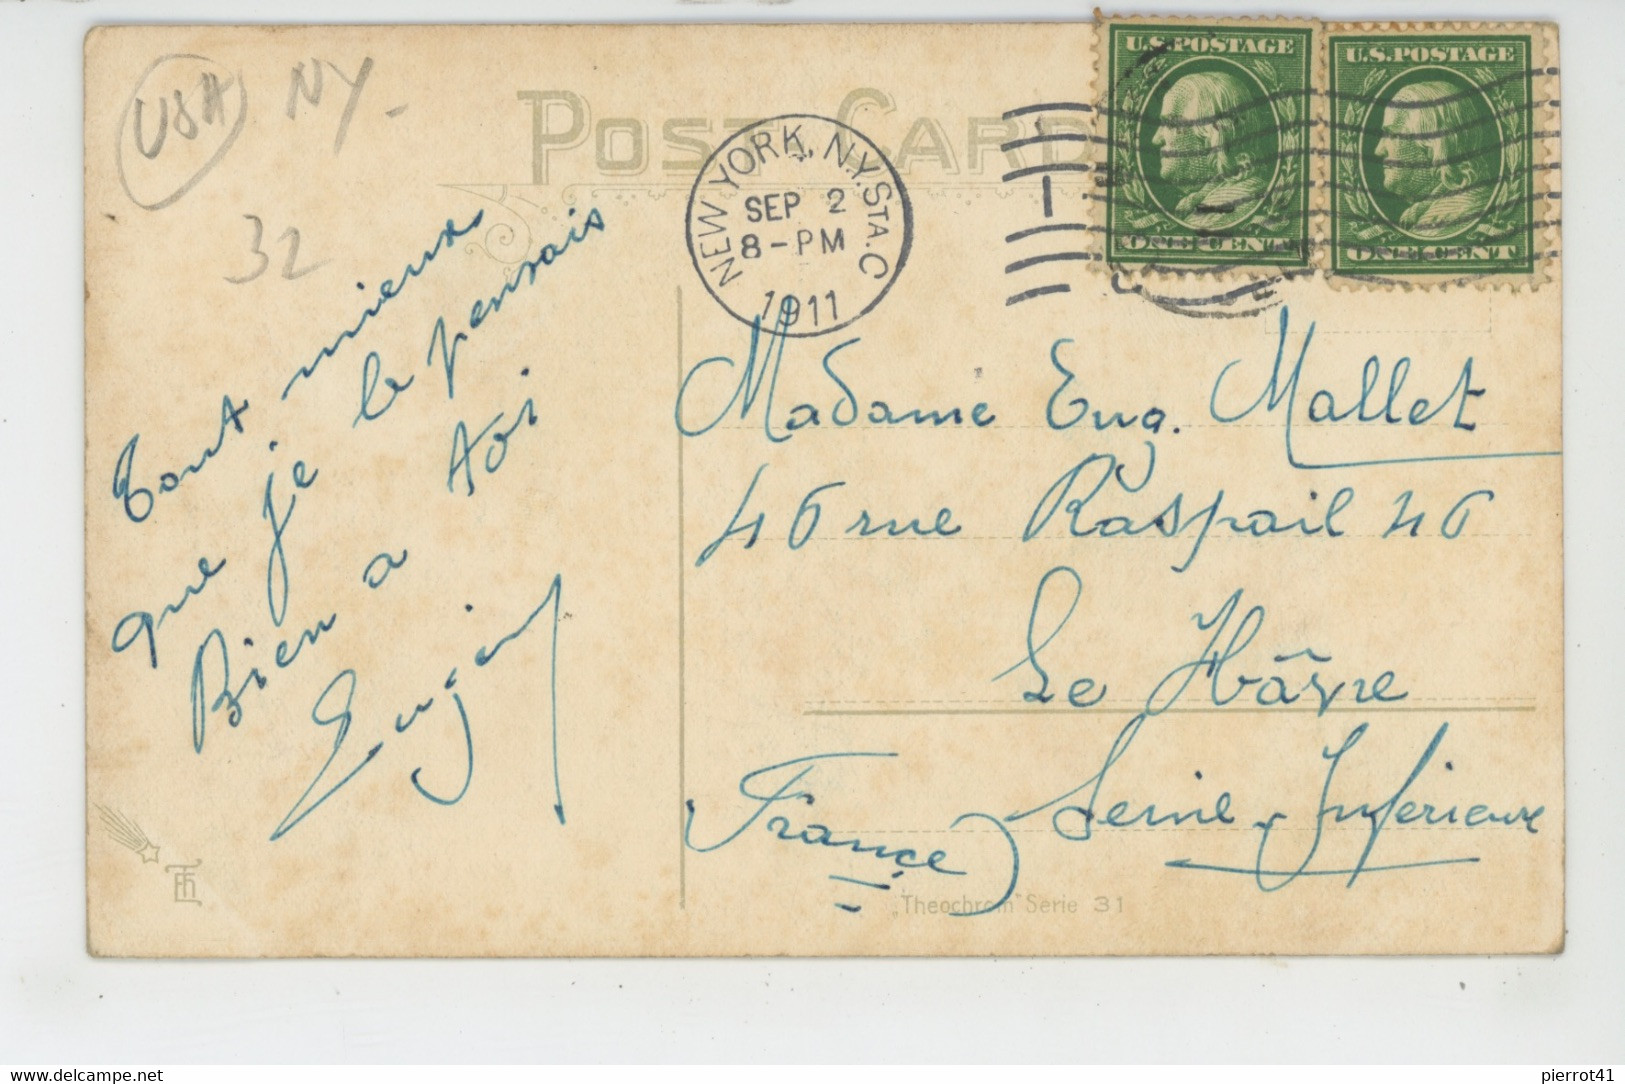 USA NY
32
POST CARD
U.S. POSTAGE
ONE CENT
U.S. POSTAGE
ONE CENT
NEW YORK, N.Y. STA. C
SEP 2
8-PM
1911
Tant mieux
que je le pensais
Bien a toi
Madame Eug. Mallet
46 rue Raspail 46
Le Hâvre
Seine-Inférieure
France
„Theochrom" Serie 31
delcampe.net
pierrot41